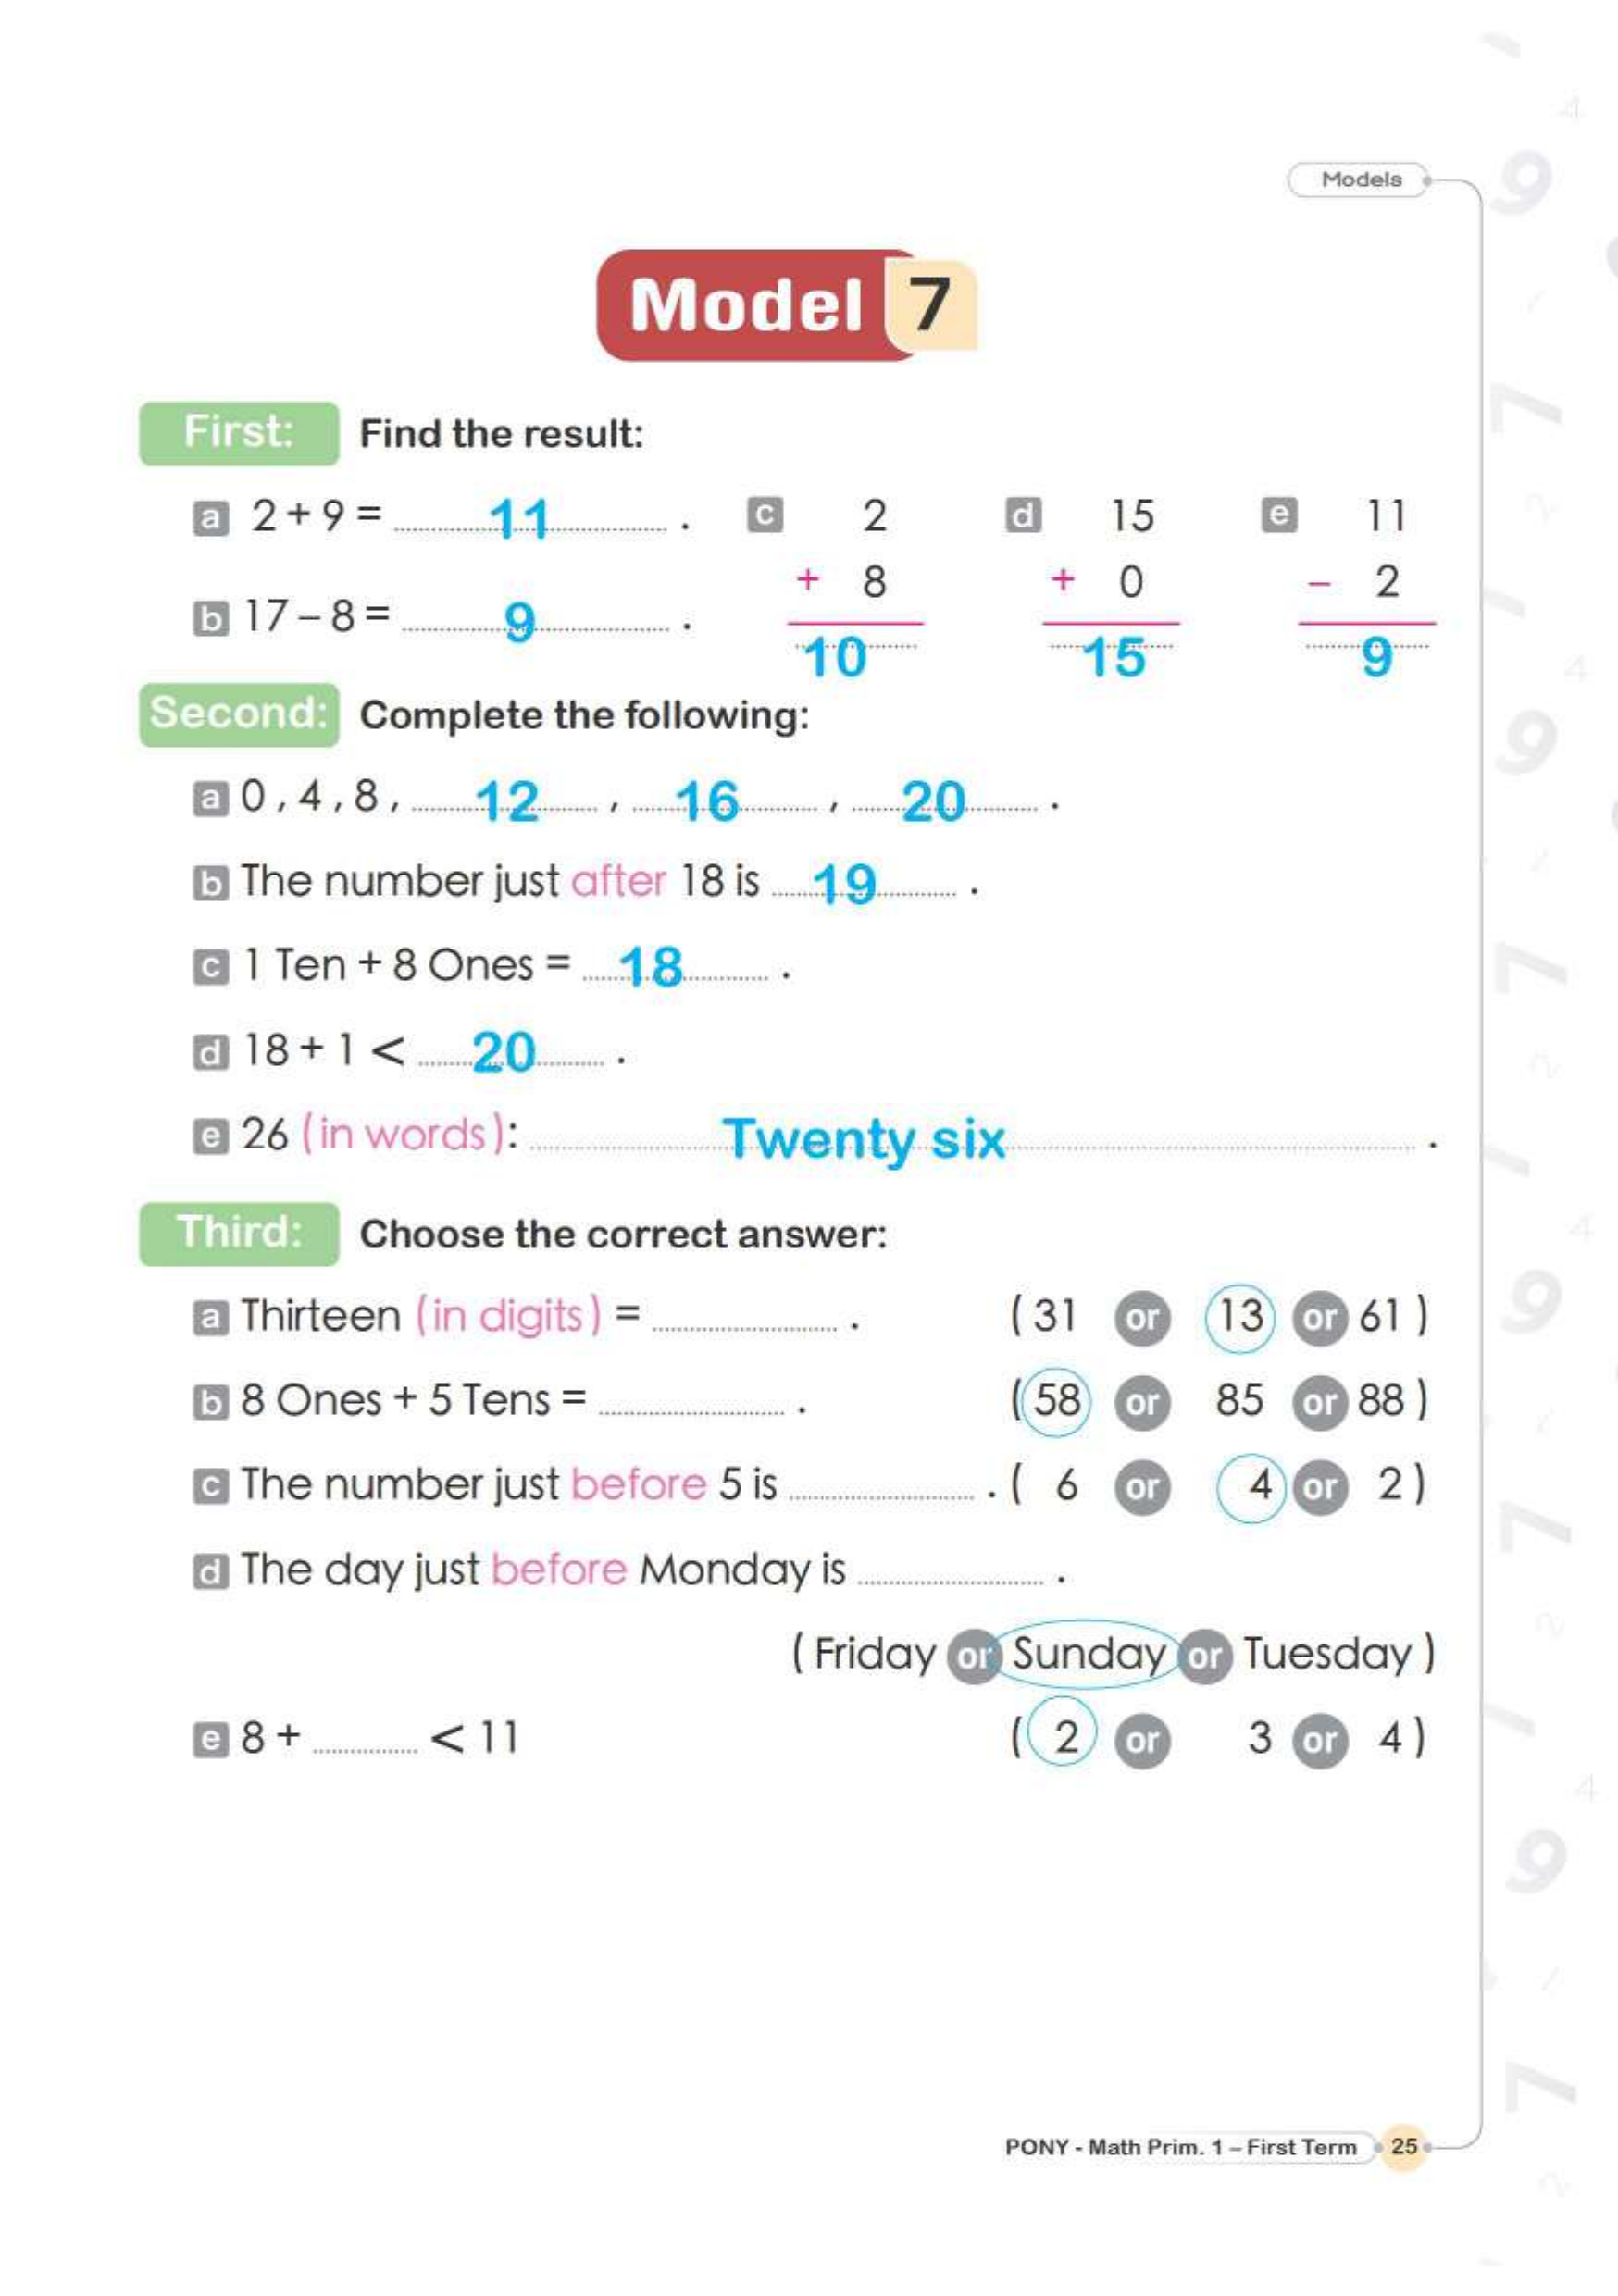 Models
Model 7
First: Find the result:
a 2 + 9 = 11 .
b 17 – 8 = 9 .
c 2
+ 8
10
d 15
+ 0
15
e 11
– 2
9
Second: Complete the following:
a 0 , 4 , 8 , 12 , 16 , 20 .
b The number just after 18 is 19 .
c 1 Ten + 8 Ones = 18 .
d 18 + 1 < 20 .
e 26 (in words): Twenty six .
Third: Choose the correct answer:
a Thirteen (in digits) = .......... . ( 31 or 13 or 61 )
b 8 Ones + 5 Tens = .......... . ( 58 or 85 or 88 )
c The number just before 5 is .......... . ( 6 or 4 or 2 )
d The day just before Monday is .......... .
( Friday or Sunday or Tuesday )
e 8 + .......... < 11 ( 2 or 3 or 4 )
PONY - Math Prim. 1 – First Term 25